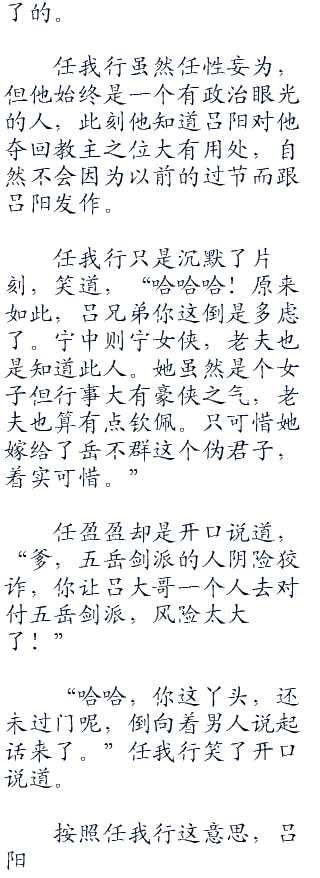 了的。
任我行虽然任性妄为，
但他始终是一个有政治眼光
的人，此刻他知道吕阳对他
夺回教主之位大有用处，自
然不会因为以前的过节而跟
吕阳发作。
任我行只是沉默了片
刻，笑道，“哈哈哈！原来
如此，吕兄弟你这倒是多虑
了。宁中则宁女侠，老夫也
是知道此人。她虽然是个女
子但行事大有豪侠之气，老
夫也算有点钦佩。只可惜她
嫁给了岳不群这个伪君子，
着实可惜。”
任盈盈却是开口说道，
“爹，五岳剑派的人阴险狡
诈，你让吕大哥一个人去对
付五岳剑派，风险太大
了！”
“哈哈，你这丫头，还
未过门呢，倒向着男人说起
话来了。”任我行笑了开口
说道。
按照任我行这意思，吕
阳